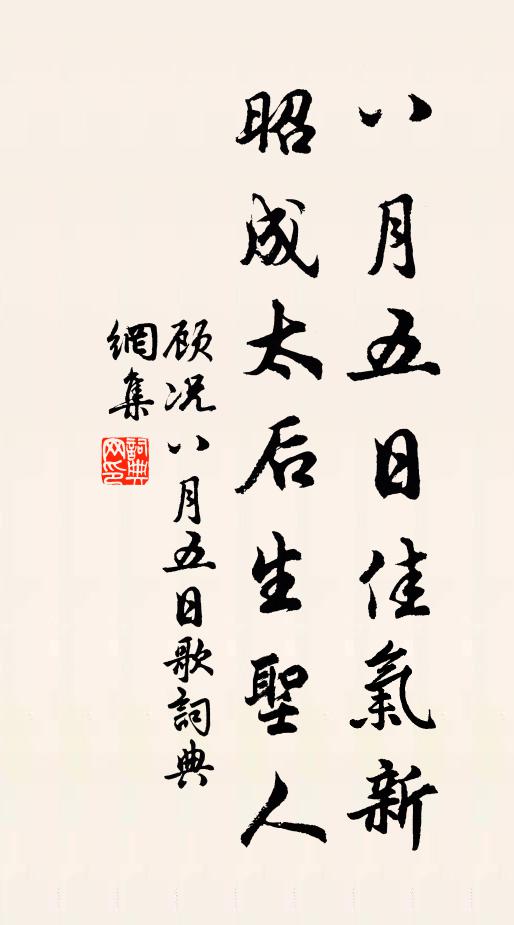 八月五日佳氣新
昭成太后生聖人
顾况八月五日歌詞典
網集
詞典
网印